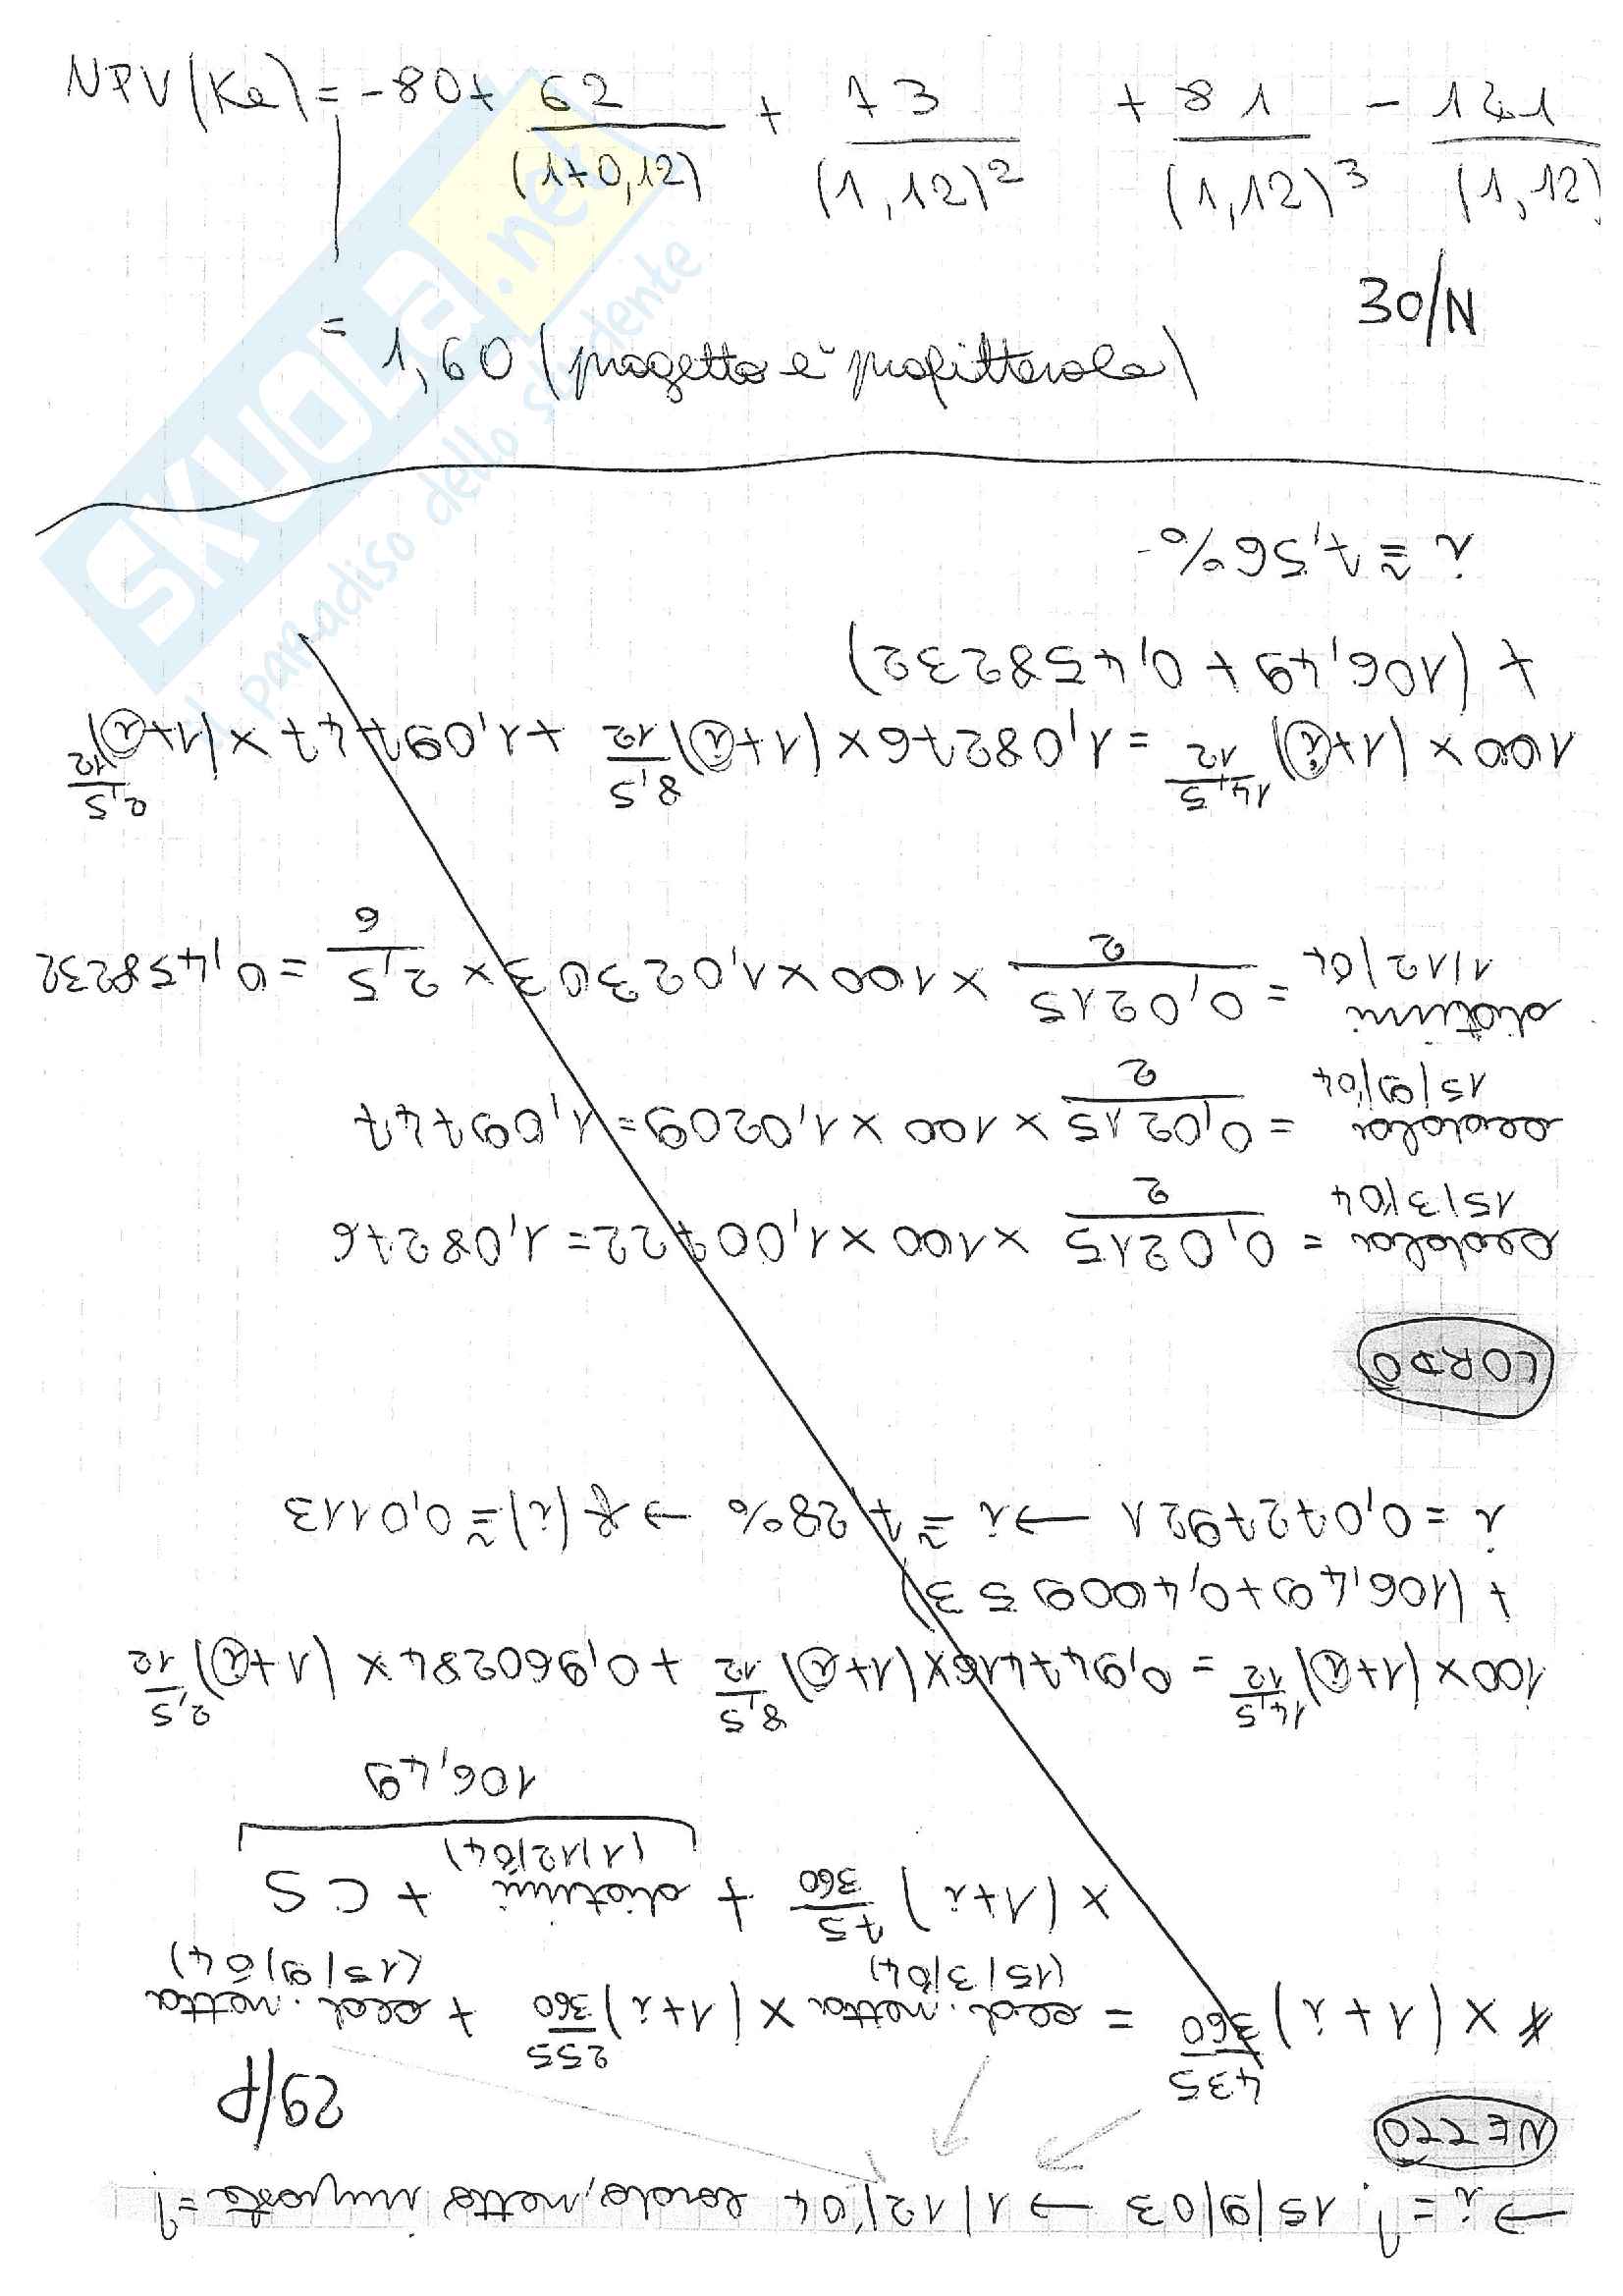 NPV(Ke) = -80+ 62/(1+0,12) + 73/(1,12)² + 81/(1,12)³ - 141/(1,12)
30/N
= 1,60 (progetto è profittevole)
SKUOLA.net
il paradiso dello studente
→ i = ? 15/9/03 → 1/12/04 lordo, netto imposte = ?
NETTO
29/P
x (1+i)^435/360 = ced. netta (15/3/04) x (1+i)^255/360 + ced. netta (15/9/04)
x (1+i)^75/360 + dietimi (1/12/04) + CS
106,49
100 x (1+i)^14,5/12 = 0,947416 x (1+i)^8,5/12 + 0,960284 x (1+i)^2,5/12
+ (106,49+0,400953)
i = 0,0727921 → i ≅ 7,28% → f(i) ≅ 0,0113
LORDO
cedola 15/3/04 = 0,0215/2 x 100 x 1,00722 = 1,08276
cedola 15/9/04 = 0,0215/2 x 100 x 1,0209 = 1,09747
dietimi 1/12/04 = 0,0215/2 x 100 x 1,02303 x 2,5/6 = 0,458232
100 x (1+i)^14,5/12 = 1,08276 x (1+i)^8,5/12 + 1,09747 x (1+i)^2,5/12
+ (106,49 + 0,458232)
i ≅ 7,56%